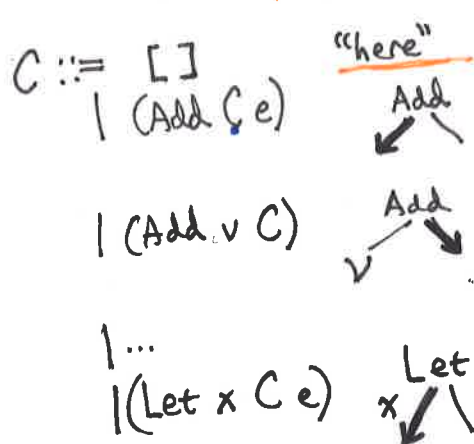 C ::= [ ] "here"
| (Add C e) Add
| (Add v C) Add
v
| ...
| (Let x C e) Let
x